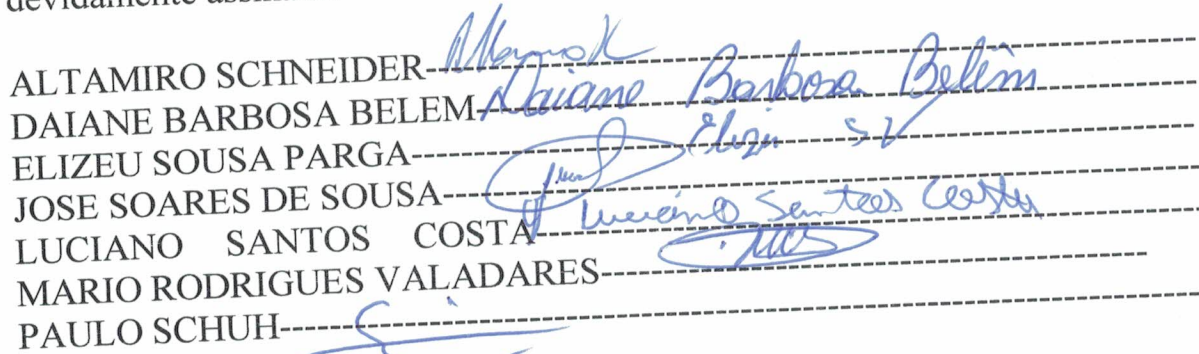 devidamente
ALTAMIRO SCHNEIDER
DAIANE BARBOSA BELEM Daiane Barbosa Belém
ELIZEU SOUSA PARGA
JOSE SOARES DE SOUSA
LUCIANO SANTOS COSTA Luciano Santos Costa
MARIO RODRIGUES VALADARES
PAULO SCHUH